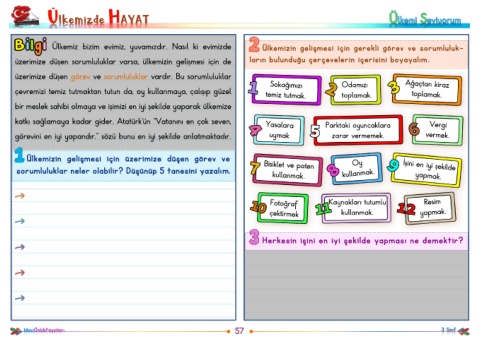 Ülkemizde HAYAT
Ülkemi Seviyorum
Bilgi Ülkemiz bizim evimiz, yuvamızdır. Nasıl ki evimizde
üzerimize düşen sorumluluklar varsa, ülkemizin gelişmesi için de
üzerimize düşen görev ve sorumluluklar vardır. Bu sorumluluklar
çevremizi temiz tutmaktan tutun da, oy kullanmaya, çalışıp güzel
bir meslek sahibi olmaya ve işimizi en iyi şekilde yaparak ülkemize
katkı sağlamaya kadar gider. Atatürk'ün "Vatanını en çok seven,
görevini en iyi yapandır." sözü bunu en iyi şekilde anlatmaktadır.
1 Ülkemizin gelişmesi için üzerimize düşen görev ve
sorumluluklar neler olabilir? Düşünüp 5 tanesini yazalım.
2 Ülkemizin gelişmesi için gerekli görev ve sorumluluk-
ların bulunduğu çerçevelerin içerisini boyayalım.
1 Sokağımızı
temiz tutmak.
2 Odamızı
toplamak.
3 Ağaçtan kiraz
toplamak.
4 Yasalara
uymak
5 Parktaki oyuncaklara
zarar vermemek.
6 Vergi
vermek.
7 Bisiklet ve paten
kullanmak.
8 Oy
kullanmak.
9 İşini en iyi şekilde
yapmak.
10 Fotoğraf
çektirmek
11 Kaynakları tutumlu
kullanmak.
12 Resim
yapmak.
3 Herkesin işini en iyi şekilde yapması ne demektir?
57
3. Sınıf